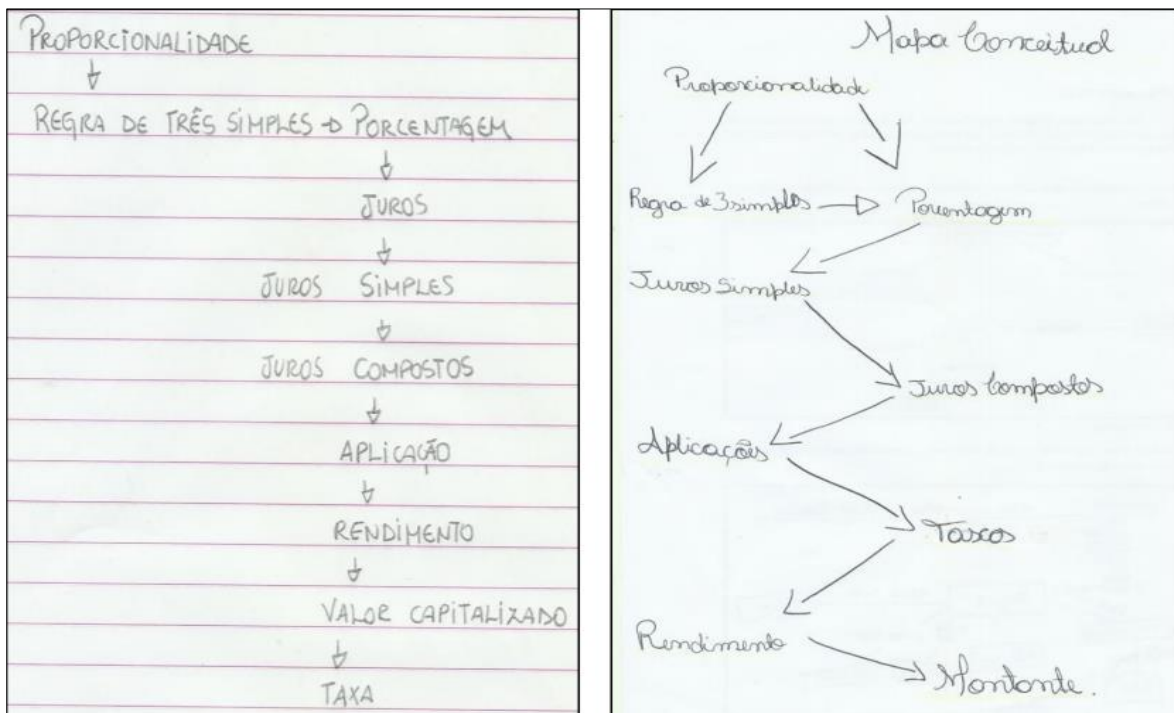 PROPORCIONALIDADE
REGRA DE TRÊS SIMPLES → PORCENTAGEM
JUROS
JUROS SIMPLES
JUROS COMPOSTOS
APLICAÇÃO
RENDIMENTO
VALOR CAPITALIZADO
TAXA
Mapa Conceitual
Proporcionalidade
Regra de 3 simples → Porcentagem
Juros Simples
Juros Compostos
Aplicações
Taxas
Rendimento
Montante.